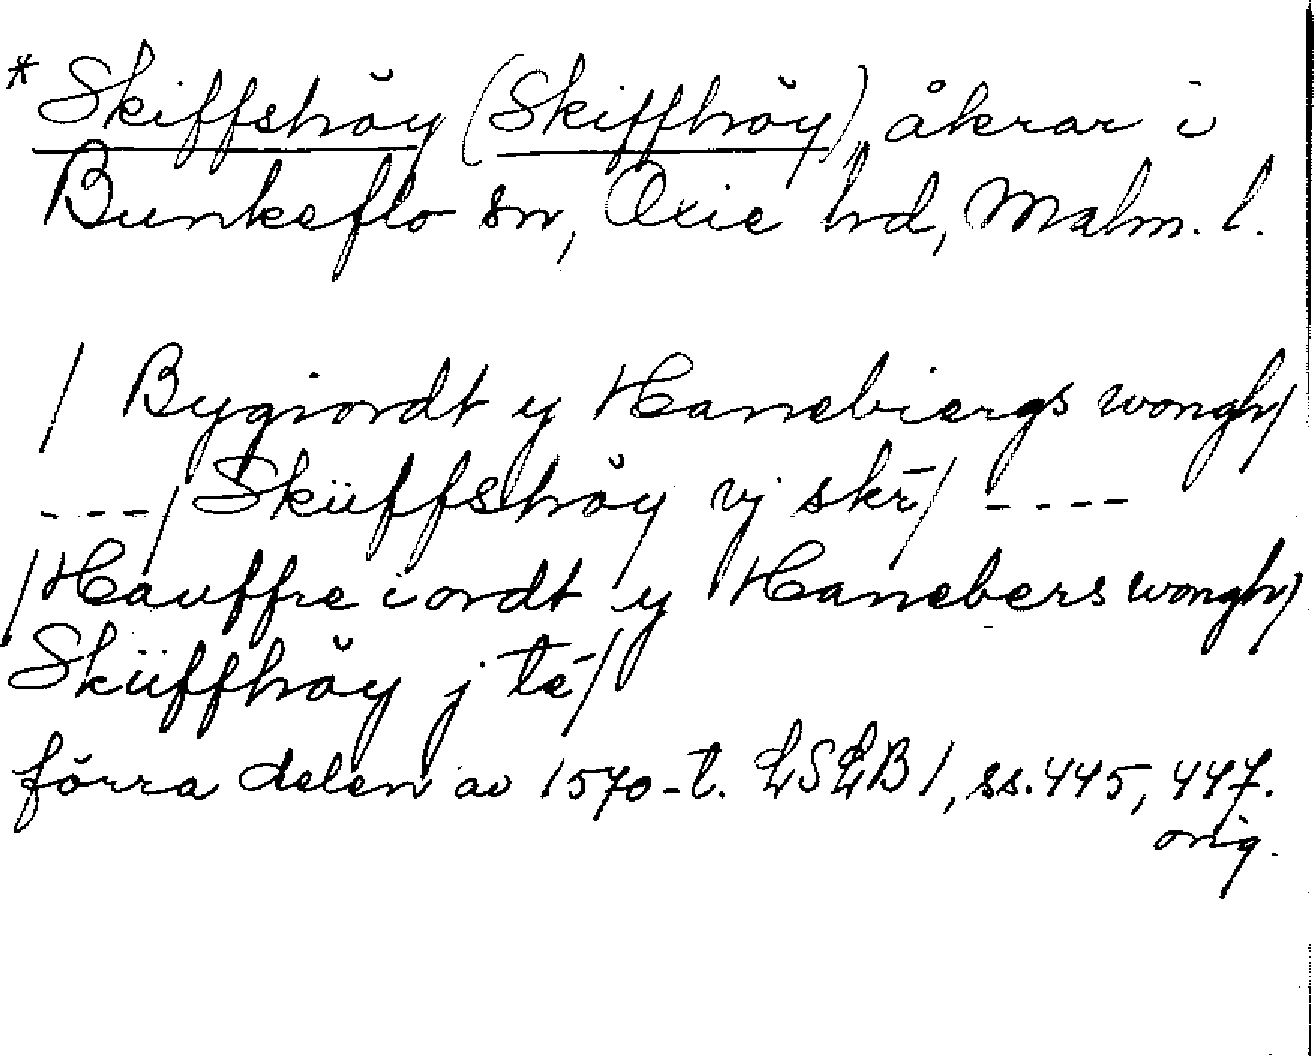 * Skiffshöy (Skiffhöy), åkrar i
Bunkeflo sn, Oxie hd, Malm. l.
/ Bygiordt y Hanebiergs wongh/
---/ Sküffshöy vj skr̄/ ----
/Hauffre iordt y Hanebers wongh/
Sküffhöy j tē/
förra delen av 1570-t. LSLB 1, ss. 445, 447.
orig.